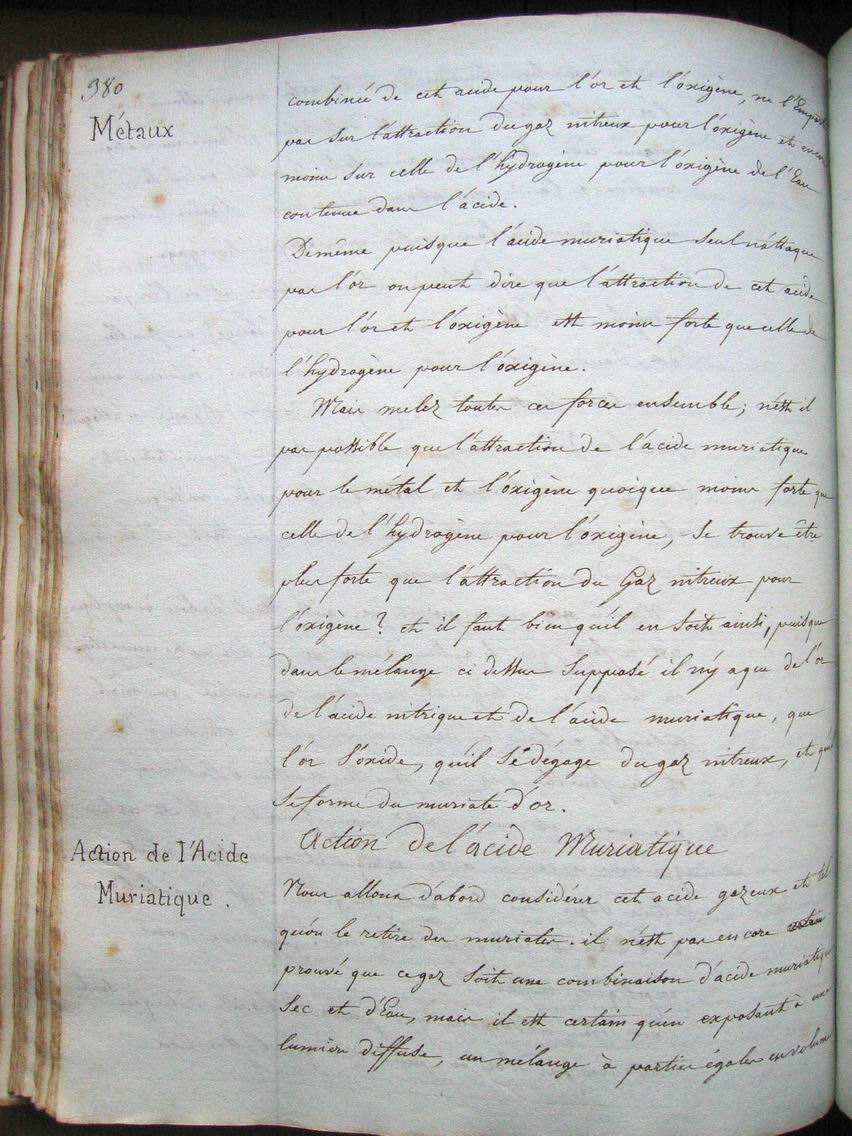 380
Métaux
combinée de cet acide pour l'or et l'oxigène, ne l'Emporte
pas sur l'attraction du gaz nitreux pour l'oxigène et encore
moins sur celle de l'hydrogène pour l'oxigène de l'Eau
contenue dans l'acide.
De même puisque l'acide muriatique seul n'attaque
pas l'or on peut dire que l'attraction de cet acide
pour l'or et l'oxigène est moins forte que celle de
l'hydrogène pour l'oxigène.
Mais melez toutes ces forces ensemble; n'est il
pas possible que l'attraction de l'acide muriatique
pour le métal et l'oxigène quoique moins forte que
celle de l'hydrogène pour l'oxigène, se trouve être
plus forte que l'attraction du Gaz nitreux pour
l'oxigène? et il faut bien qu'il en soit ainsi, puisque
dans le mélange ci dessus supposé il n'y a que de l'or
de l'acide nitrique et de l'acide muriatique, que
l'or s'oxide, qu'il se dégage du gaz nitreux, et qu'il
se forme du muriate d'or.
Action de l'acide Muriatique
Action de l'Acide
Muriatique.
Nous allons d'abord considérer cet acide gazeux et tel
qu'on le retire des muriates. il n'est pas encore
prouvé que ce gaz soit une combinaison d'acide muriatique
sec et d'Eau, mais il est certain qu'en exposant à une
lumière diffuse, un mélange à parties égales en volume